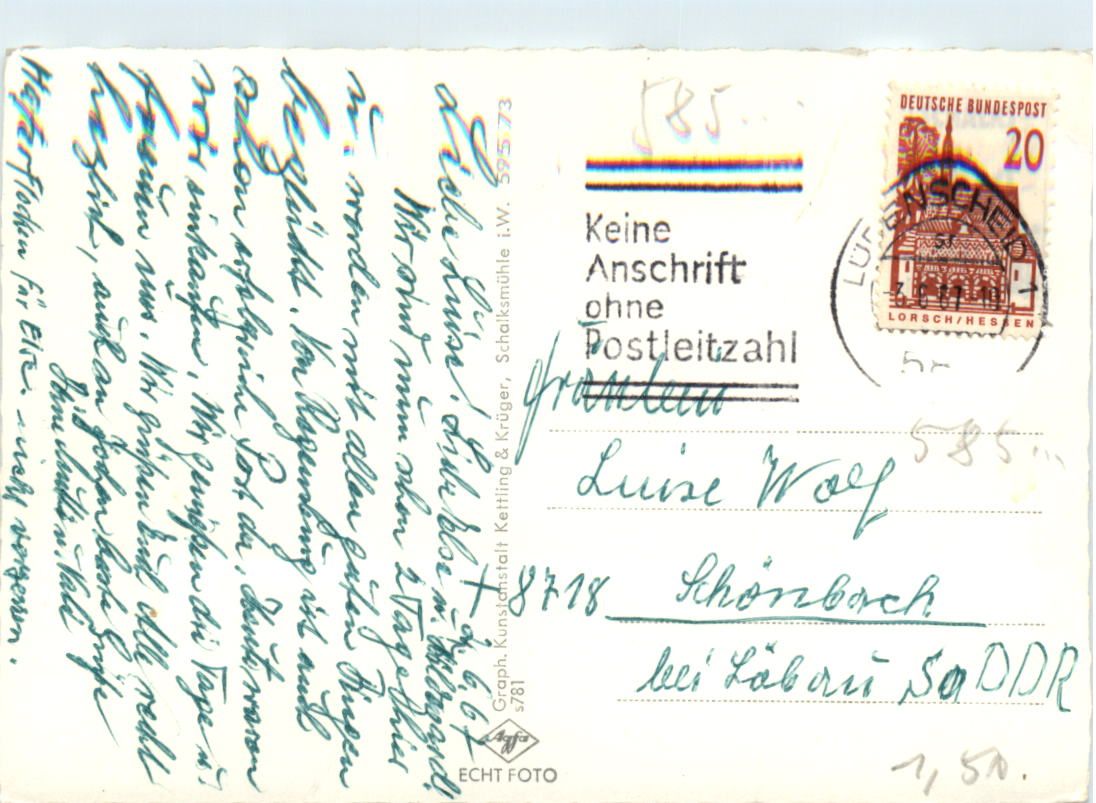 Liebe Luise! Liebe Else u. Hildegard!
d. 6.6.67
Wir sind nun schon 2 Tage hier
u. werden mit allen guten Dingen
beglückt. Von Regensburg ist auch
schon erfolgreich Post da. Heute waren
wir einkaufen. Wir genießen die Tage u.
freuen uns. Wir grüßen Euch alle recht
herzlich, auch an Jochen beste Grüße
Haferflocken für Else nicht vergessen.
Graph. Kunstanstalt Kettling & Krüger, Schalksmühle i.W. 595 73
s781
Agfa
ECHT FOTO
585...
Keine
Anschrift
ohne
Postleitzahl
DEUTSCHE BUNDESPOST
20
LORSCH/HESSEN
LÜDENSCHEID
1
-7.6.67-10
Fräulein
585...
Luise Wolf
+ 8718 Schönbach
bei Löbau, Sa DDR
1,50.